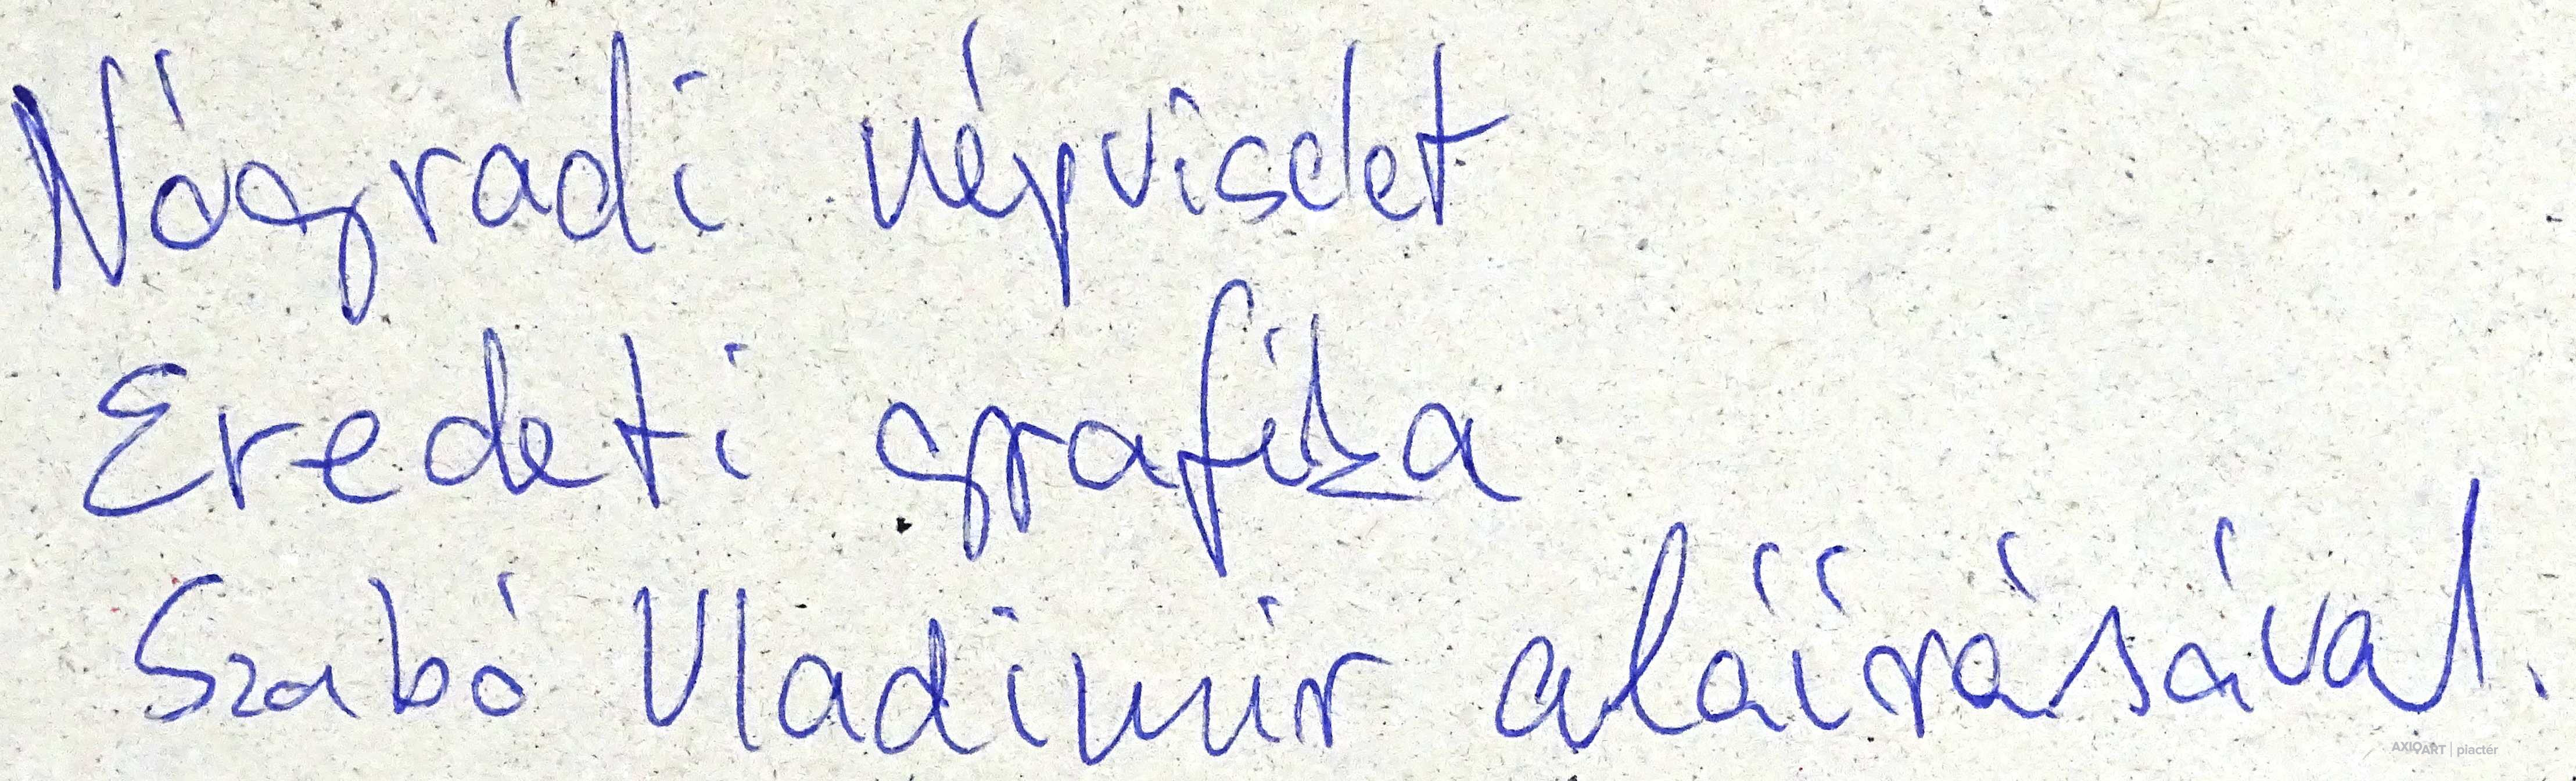 Nógrádi népviselet
Eredeti grafika
Szabó Vladimir aláírásával.
AXIOART | placter